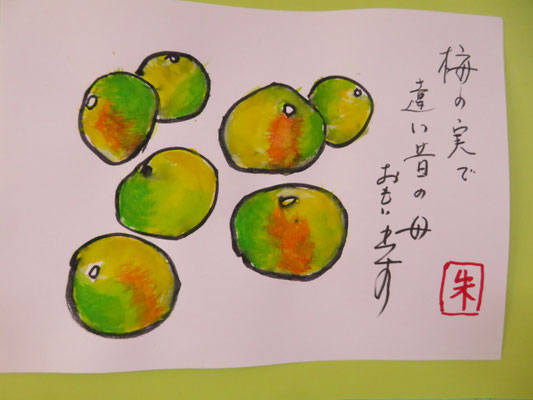 梅の実で
遠い昔の母
おもい出す
朱